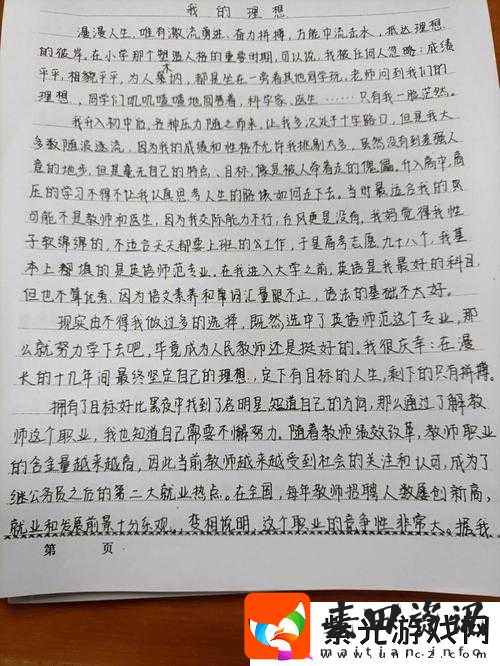 我的理想
漫漫人生，唯有激流勇进，奋力拼搏，方能中流击水，抵达理想
的彼岸。在小学那个塑造人格的重要时期，可以说，我被任何人忽略：成绩
平平，相貌平平，为人木讷，都是坐在一旁看其他同学玩，老师问到我们的
理想，同学们叽叽喳喳地回答着，科学家、医生……只有我一脸茫然。
我升入初中后，各种压力随之而来，让我多次处于十字路口，但是我大
多数随波逐流，因为我的成绩和性格不允许我挑剔太多，虽然没有到差强人
意的地步，但是毫无自己的特点、目标，像是被人牵着走的傀儡。升入高中，高
压的学习不得不让我认真思考人生的路该如何走下去。当时最适合我的
可能不是教师和医生，因为我交际能力不行，台风更是没有，我妈觉得我性
子软绵绵的，不适合天天都要上班的公工作，于是高考志愿九十八个，我基
本上都填的是英语师范专业。在我进入大学之前，英语是我最好的科目，
但也不算优秀，因为语文素养和单词汇量跟不上，语法的基础不太好。
现实由不得我做过多的选择，既然选中了英语师范这个专业，那
么就努力学下去吧，毕竟成为人民教师还是挺好的。我很庆幸：在漫
长的十几年间最终坚定自己的理想，定下有目标的人生，剩下的只有拼搏。
拥有了目标好比黑夜中找到了启明星，知道自己的方向，那么通过了解教
师这个职业，我也知道自己需要不懈努力。随着教师绩效改革，教师职业
的含金量越来越高，因此当前教师越来越受到社会的关注和认可，成为了
继公务员之后的第二大就业热点。在全国，每年教师招聘人数屡创新高，
就业和发展前景十分乐观。变相说明，这个职业的竞争性非常大。据我
第 页
紫光游戏网
www.unc2.com
maitian